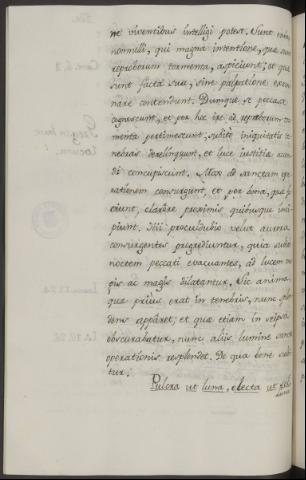 ne viventibus intelligi potest. Sunt
nonnulli, qui magna intentione, quae sunt
reproborum tormenta, aspiciunt; et quae
sunt facta sua, sine palpatione
contendunt. Dumque se peccasse
agnoscunt, et per hoc ire ad reproborum tor-
menta pertimescunt; subito iniquitatis te-
nebras derelinquunt, et luce justitiae
di concupiscunt. Mox ad sanctam ope-
rationem consurgunt, et per bona, quae fa-
ciunt, clarere proximis quibusque inci-
piunt. Hi proculdubio velut aurora
consurgentes progrediuntur, quia subito
noctem peccati evacuantes, ad lucem
magis ac magis dilatantur. Sic anima
quae prius erat in tenebris, nunc splen-
dens apparet; et quae etiam in seipsa
obscurabatur, nunc aliis lumine sanctae
operationis resplendet. De qua bene
tur:
Pulcra ut luna, electa ut sol